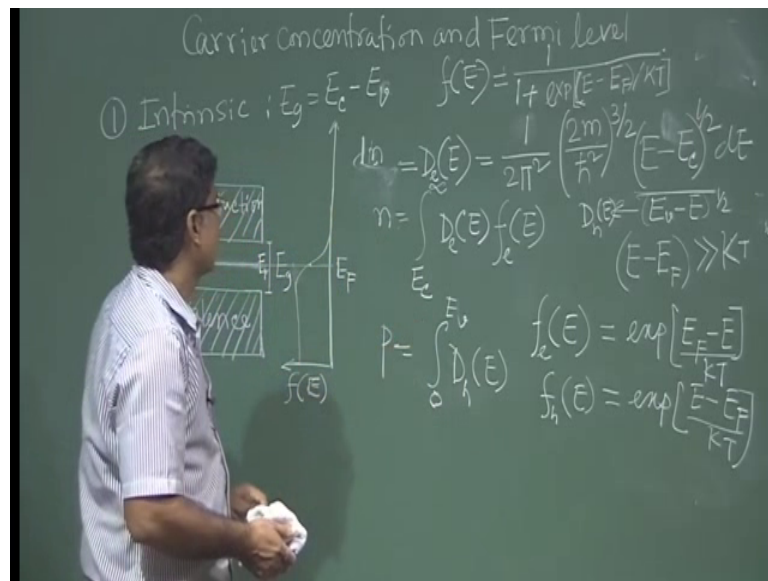 Carrier concentration and Fermi level
① Intrinsic ; E_g = E_c − E_v
f(E) = 1 / (1 + exp[(E − E_F)/KT])
dn = D_e(E) = 1/(2π²) (2m/ħ²)^{3/2} (E − E_c)^{1/2} dE
n = ∫_{E_c}^{∞} D_e(E) f_e(E)
D_h(E) ← (E_v − E)^{1/2}
(E − E_F) ≫ KT
E_F E_g E_F
f(E)
P = ∫_{0}^{E_v} D_h(E)
f_e(E) = exp[(E_F − E)/KT]
f_h(E) = exp[(E − E_F)/KT]